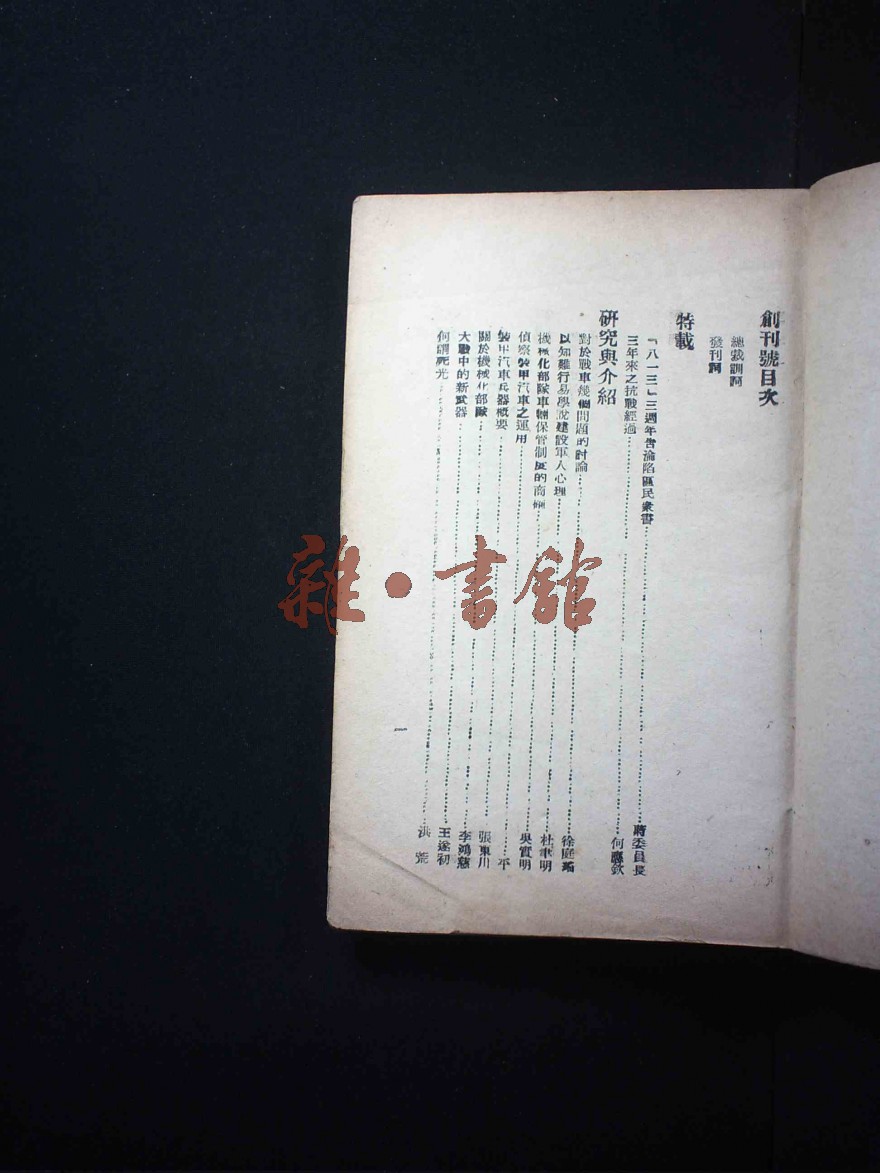 創刊號目次
總裁訓詞
發刊詞
特載
「八一三」三週年告淪陷區民衆書 蔣委員長
三年來之抗戰經過 何應欽
研究與介紹
對於戰車幾個問題的討論 徐庭瑤
以知難行易學說建設軍人心理 杜聿明
機械化部隊車輛保管制度的商榷 吳實明
偵察裝甲汽車之運用 平
裝甲汽車兵器概要 張東川
關於機械化部隊 李鴻慈
大戰中的新武器 王遂初
何謂死光 洪荒
一
雜·書館